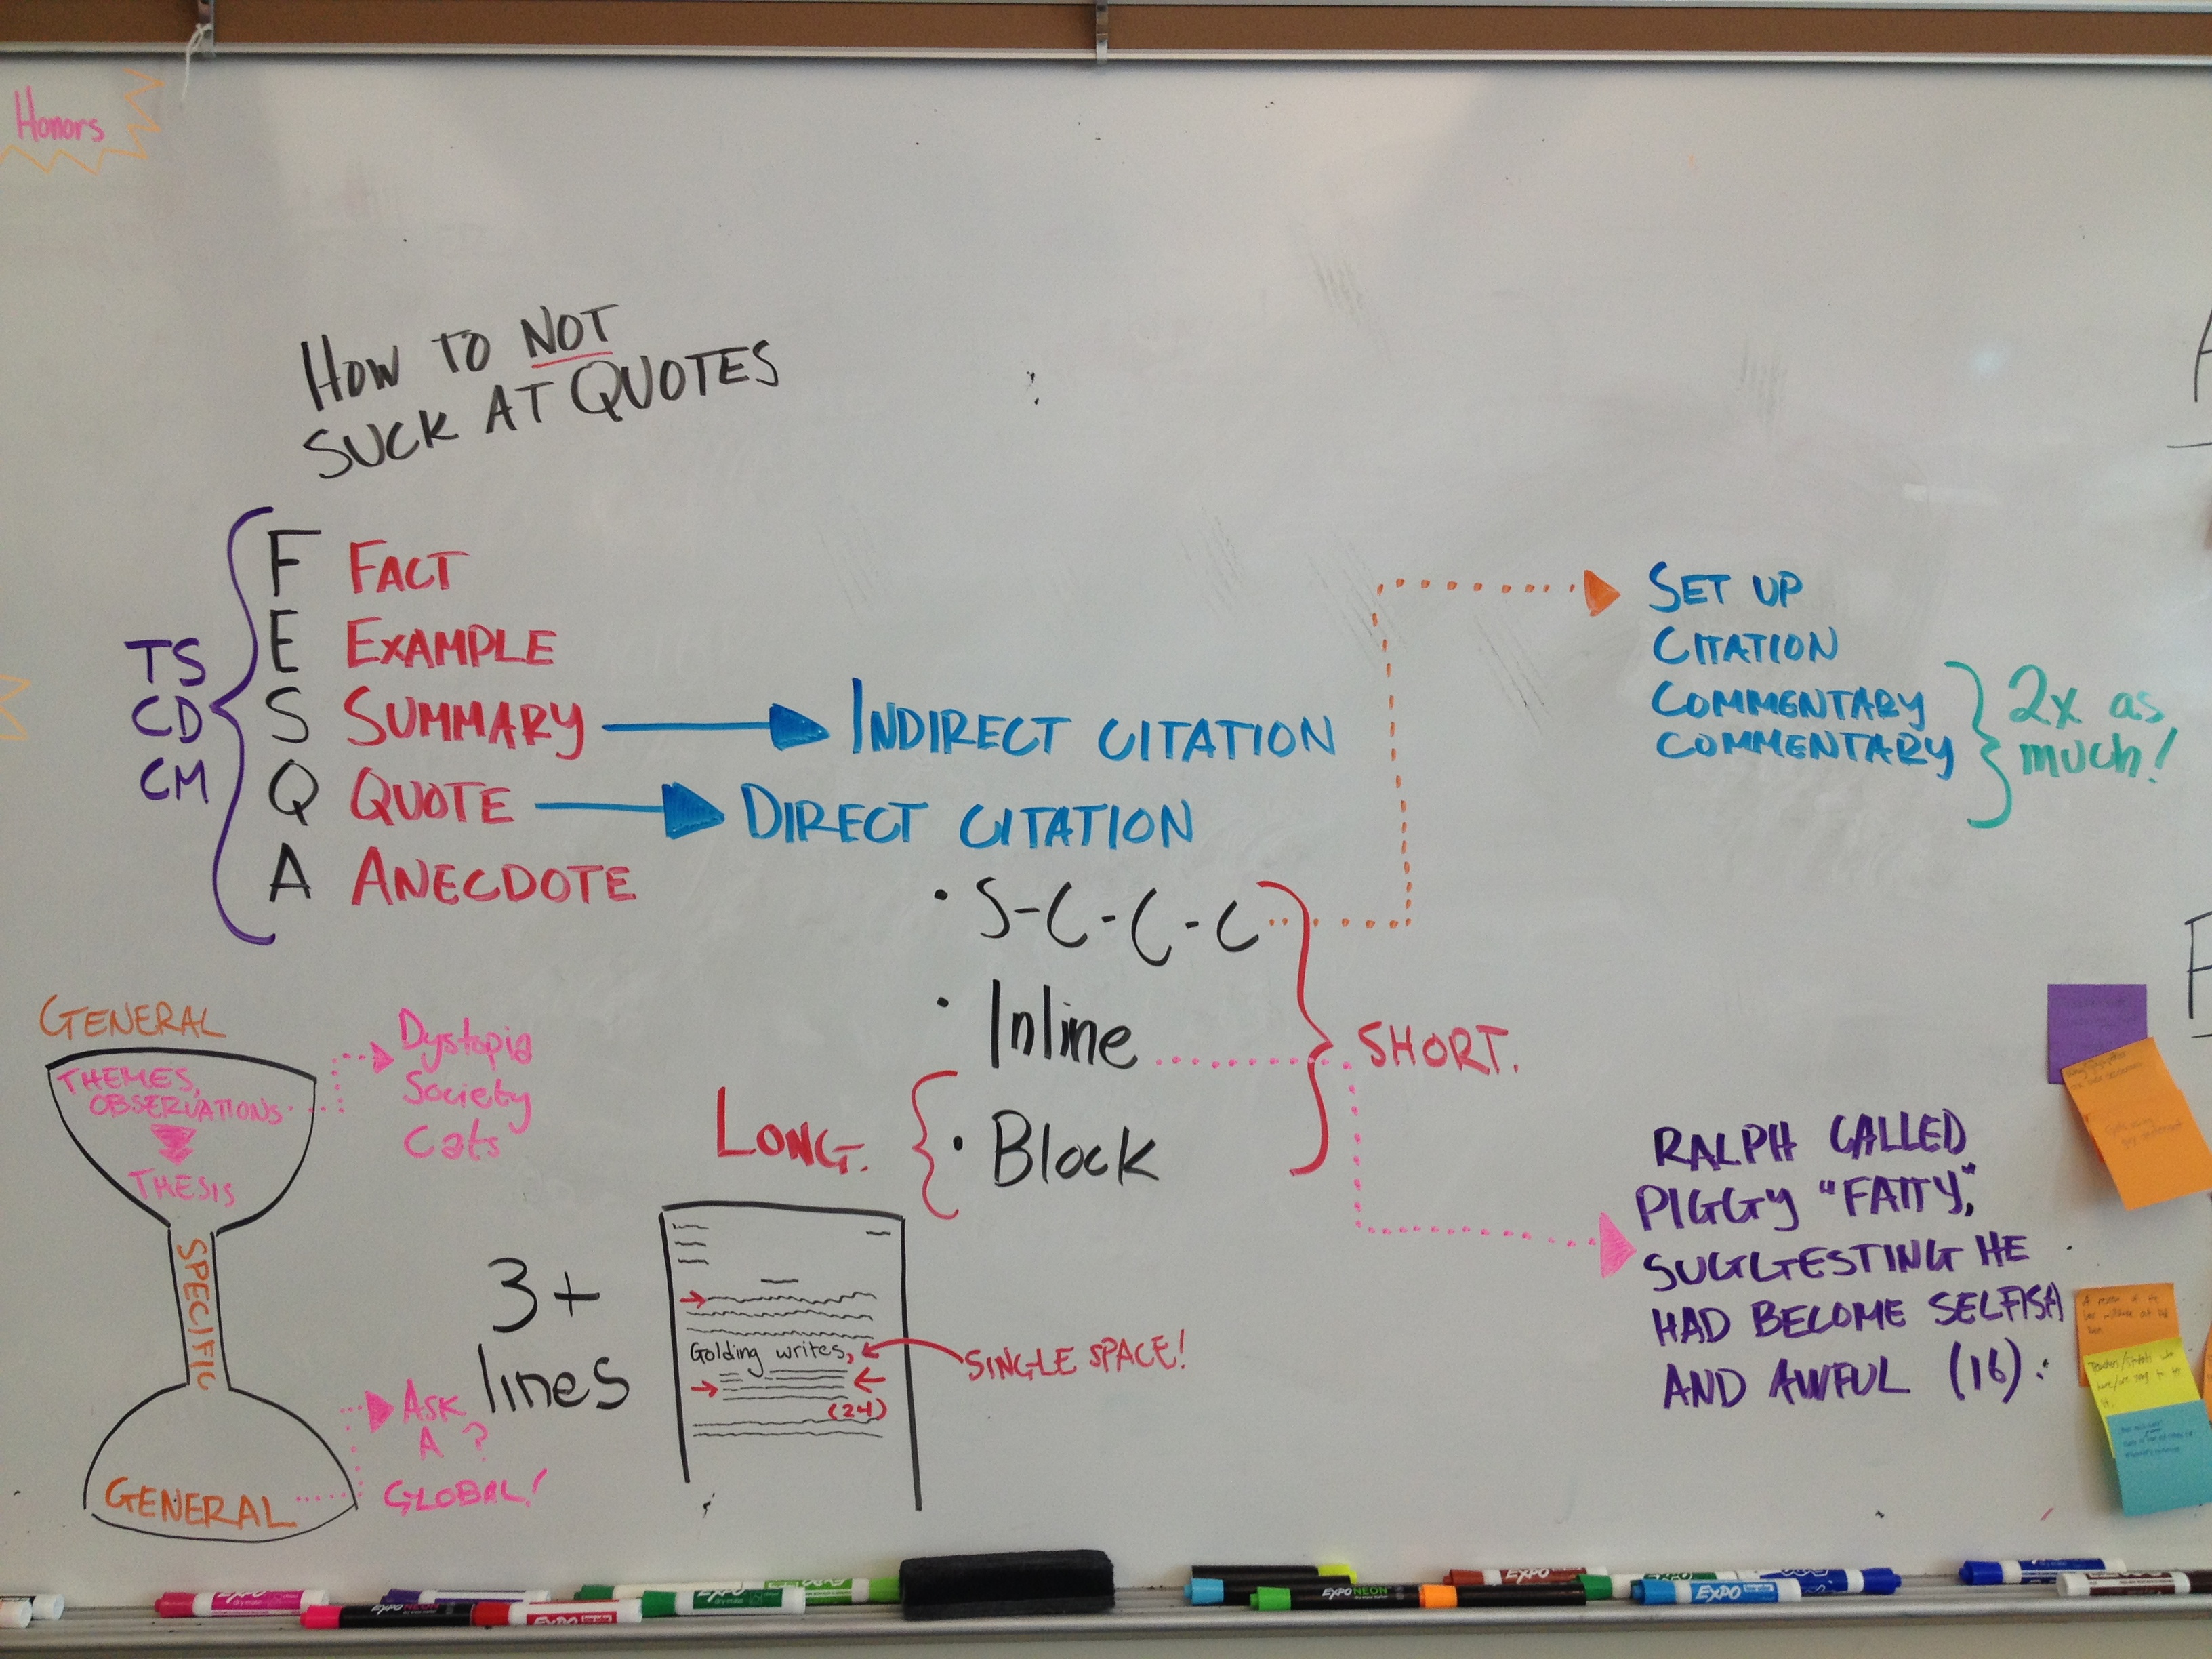 Honors
HOW TO NOT
SUCK AT QUOTES
TS
CD
CM
F FACT
E EXAMPLE
S SUMMARY
Q QUOTE
A ANECDOTE
INDIRECT CITATION
DIRECT CITATION
• S-C-C-C
• Inline
• Block
SHORT.
LONG.
SET UP
CITATION
COMMENTARY
COMMENTARY
2x as
much!
RALPH CALLED
PIGGY "FATTY,"
SUGGESTING HE
HAD BECOME SELFISH
AND AWFUL (16).
GENERAL
THEMES,
OBSERVATIONS
THESIS
SPECIFIC
GENERAL
Dystopia
Society
Cats
ASK
A ?
GLOBAL!
3+
lines
Golding writes,
(24)
SINGLE SPACE!
EXPO
EXPO
EXPO
EXPO NEON
EXPO
EXPO